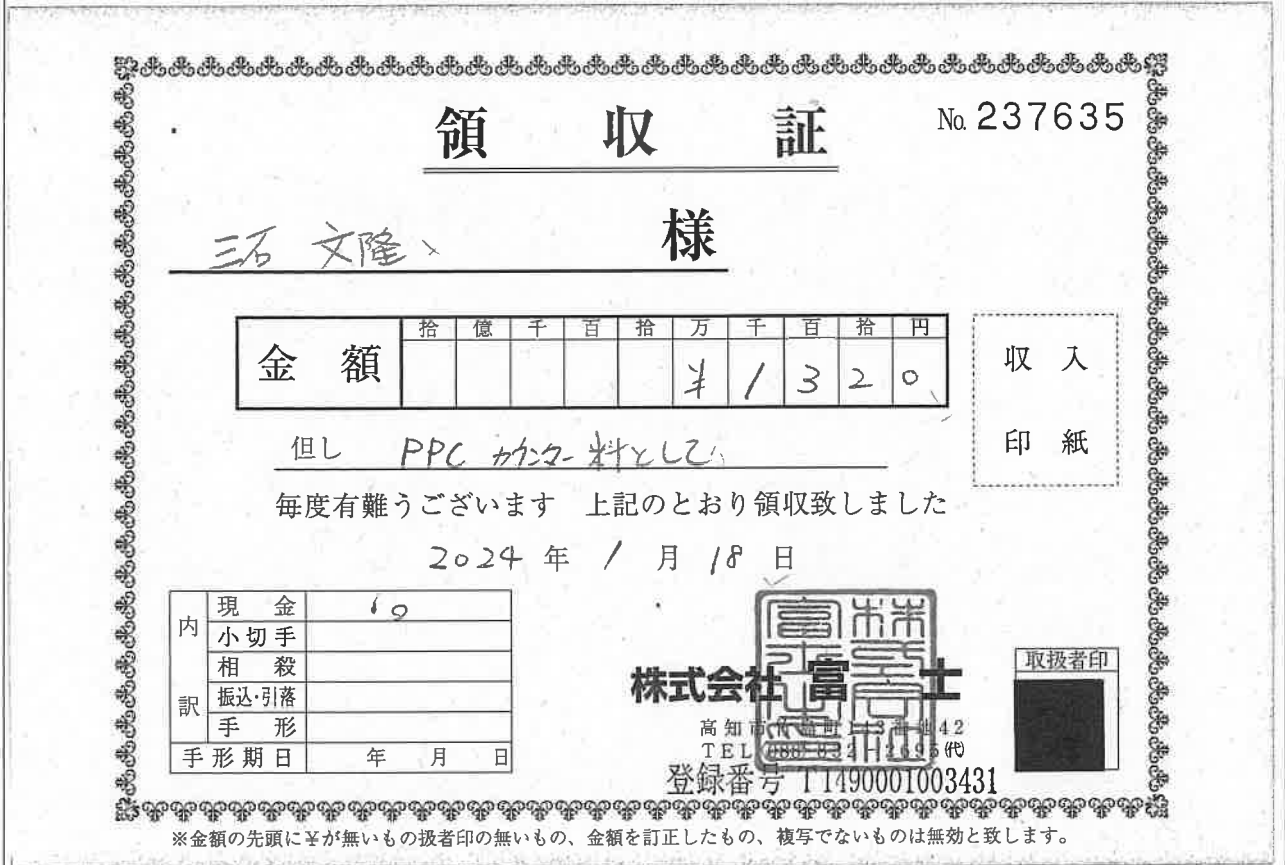 領収証
No. 237635
三石 文隆 様
拾 億 千 百 拾 万 千 百 拾 円
金額 ¥ 1 3 2 0
収入
印紙
但し PPC カウンター料として
毎度有難うございます 上記のとおり領収致しました
2024年 1月 18日
内訳
現金
小切手
相殺
振込・引落
手形
手形期日 年 月 日
株式会社 富士
高知市
42
TEL
(代)
登録番号 T1490001003431
取扱者印
※金額の先頭に¥が無いもの扱者印の無いもの、金額を訂正したもの、複写でないものは無効と致します。